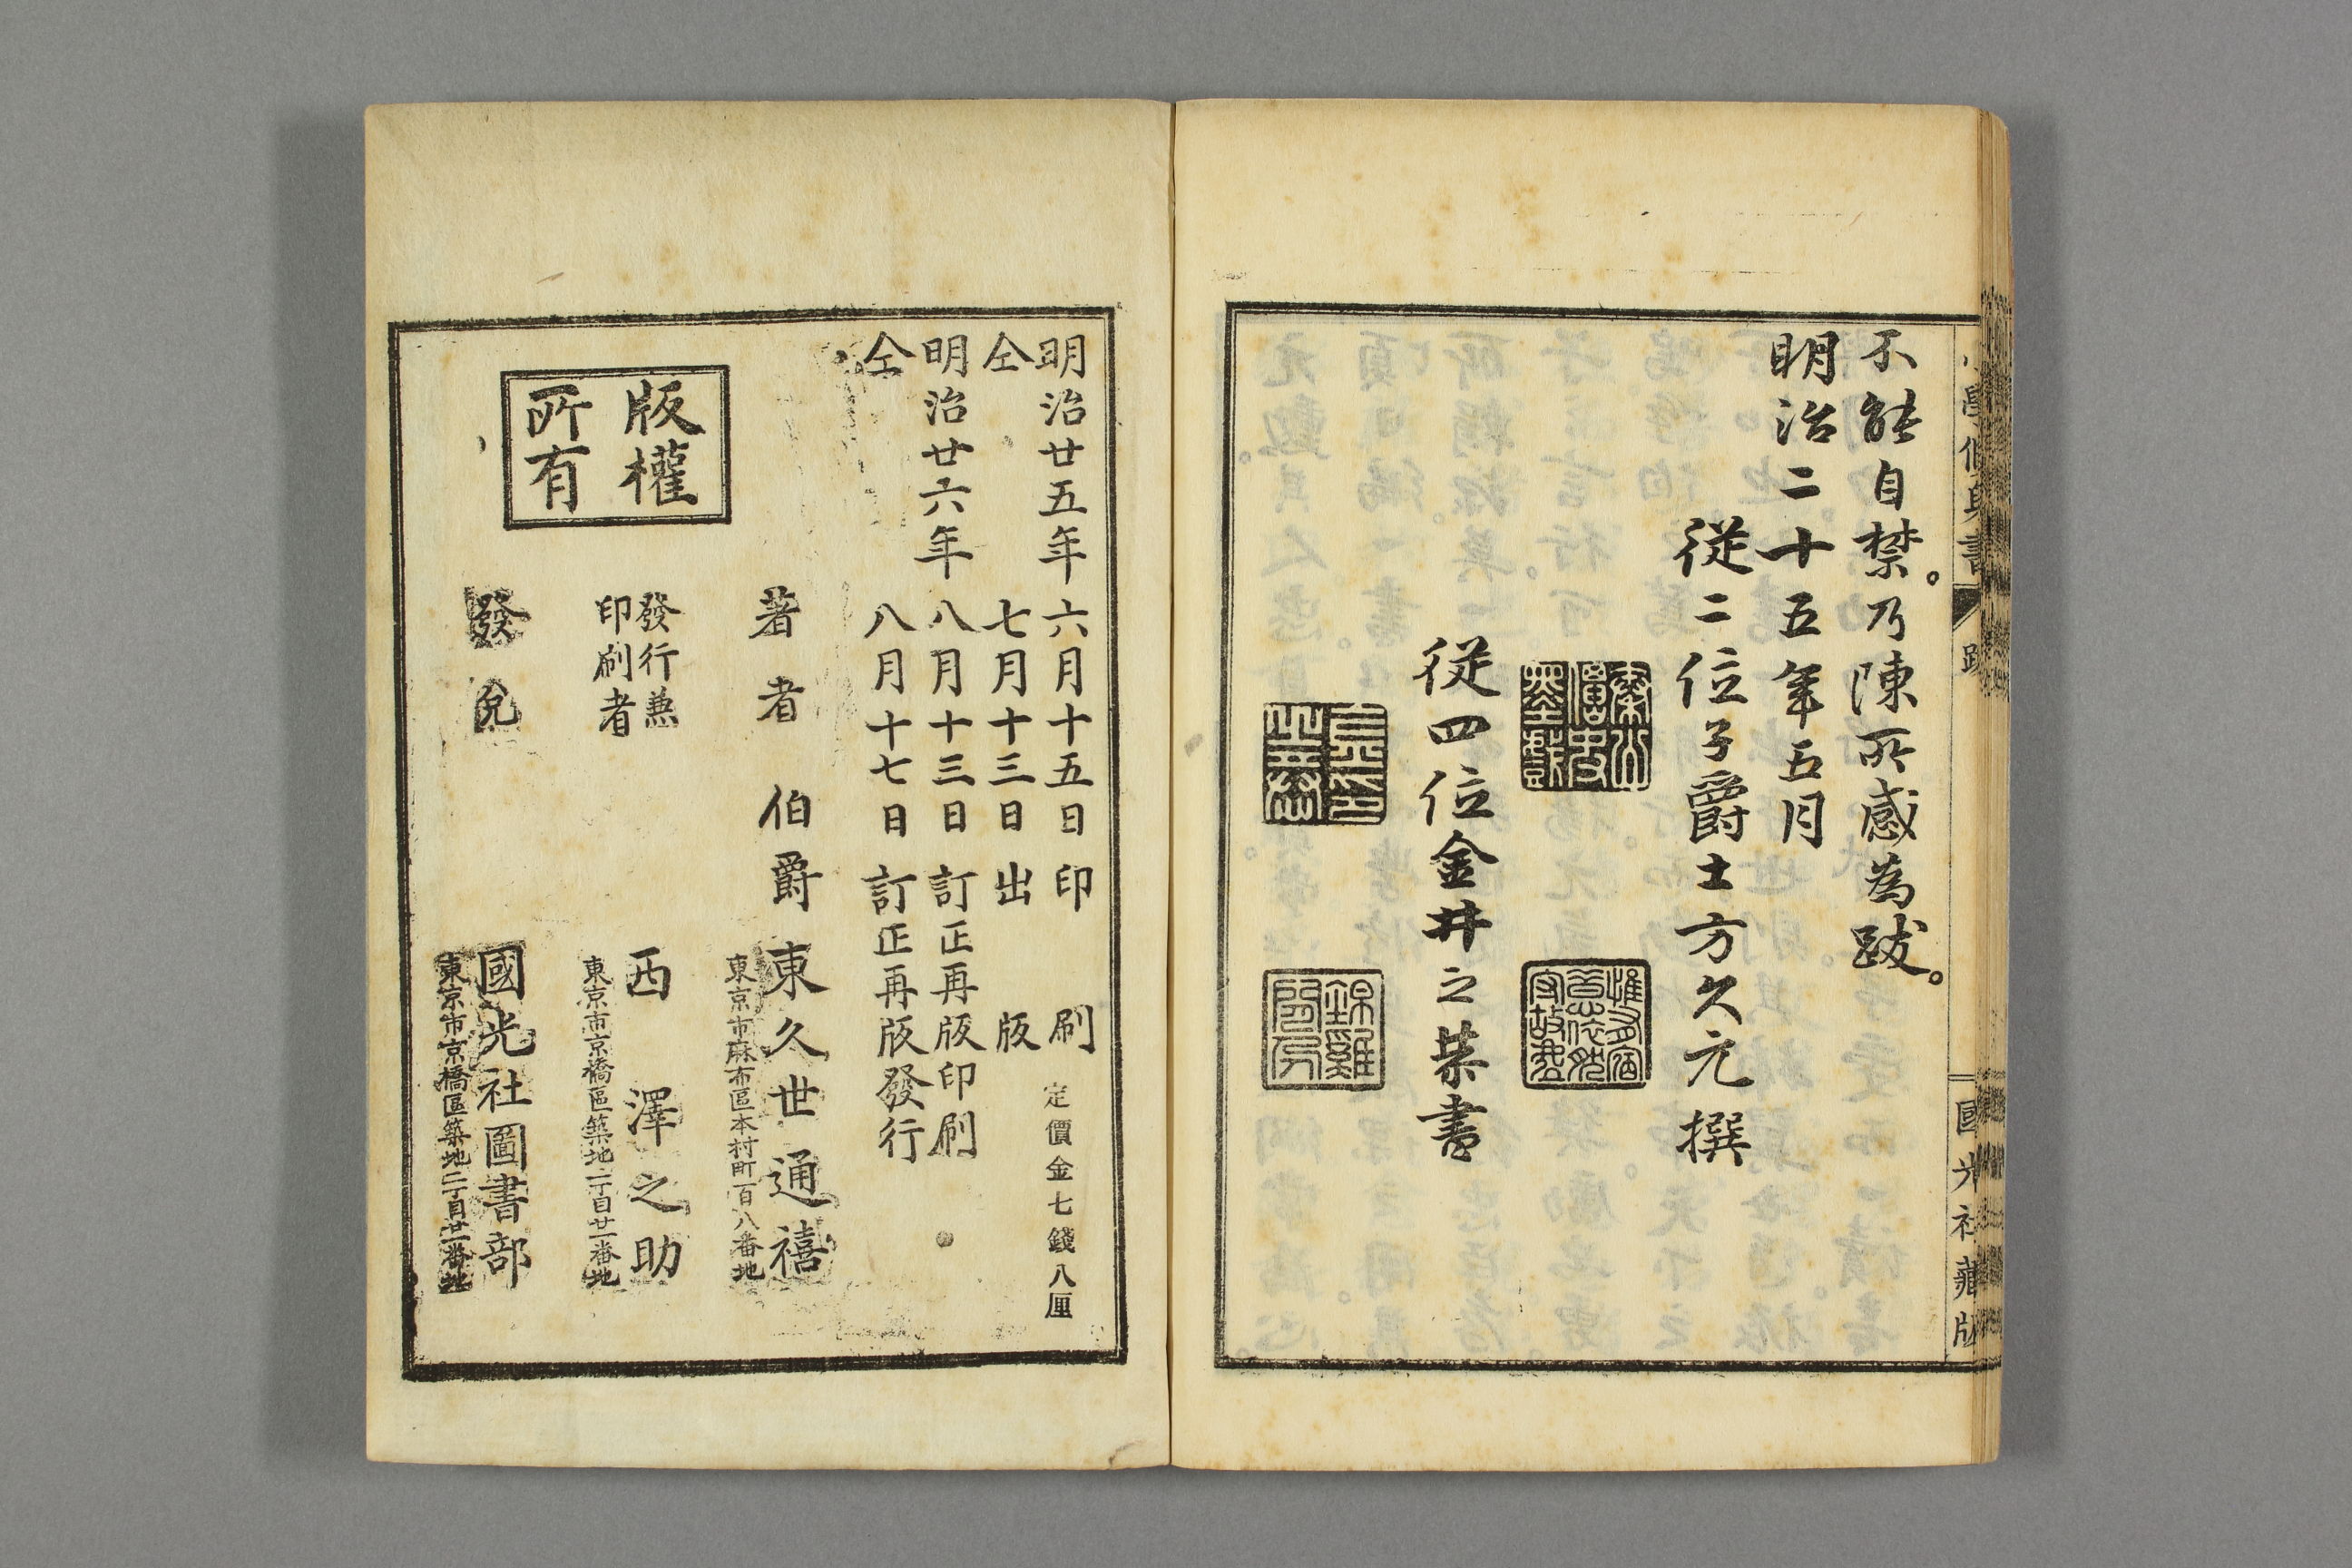 不能自禁。乃陳所感為跋。
明治二十五年五月
從二位子爵土方久元撰
從四位金井之恭書
小學修身書
跋
國光社藏版
明治廿五年六月十五日印刷
仝七月十三日出版
明治廿六年八月十三日訂正再版印刷
仝八月十七日訂正再版發行
定價金七錢八厘
著者伯爵東久世通禧
東京市麻布區本村町百八番地
發行兼
印刷者
西澤之助
東京市京橋區築地二丁目廿一番地
發兌國光社圖書部
東京市京橋區築地二丁目廿一番地
版權
所有